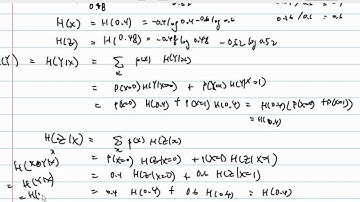 0.48
H(X) = H(0.4) = -0.4 log 0.4 - 0.6 log 0.6
H(Z) = H(0.48) = -0.48 log 0.48 - 0.52 log 0.52
H(Y|X) = Σ p(x) H(Y|x)
x
= P(X=0) H(Y|X=0) + P(X=1) H(Y|X=1)
= P(X=0) H(0.4) + P(X=1) H(0.4) = H(0.4)(P(X=0) + P(X=1))
= H(0.4)
H(Z|X) = Σ p(x) H(Z|x)
x
= P(X=0) H(Z|X=0) + P(X=1) H(Z|X=1)
= 0.4 H(Z|X=0) + 0.6 H(Z|X=1)
= 0.4 H(0.4) + 0.6 H(0.4) = H(0.4)
H(X⊕Y|X)
= H(Y|X)